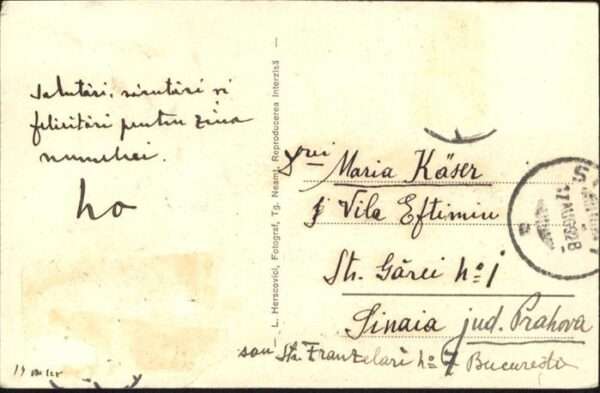 Salutări, sărutări și
felicitări pentru ziua
numelui.
— L. Herscovici, Fotograf, Tg. Neamț. Reproducerea Interzisă —
Maria Käser
Vila Eftimiu
Str. Gărei No. 1
Sinaia jud. Prahova
sau Str. Franzelari No. 7 București
17 AUG 928